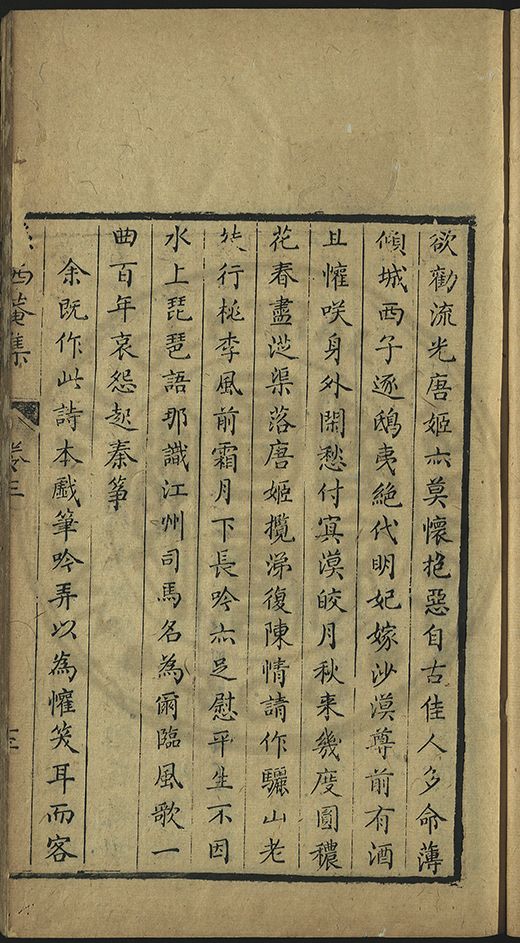 欲勸流光唐姬亦莫懷抱惡自古佳人多命薄
傾城西子逐鴟夷絶代明妃嫁沙漠尊前有酒
且懽咲身外閑愁付寞漠皎月秋来幾度圓穠
花春盡從渠落唐姬攬涕復陳情請作驪山老
行桃李風前霜月下長吟亦足慰平生不因
水上琵琶語那識江州司馬名為爾臨風歌一
曲百年哀怨起秦箏
余既作此詩本戲筆吟弄以為懽笑耳而客
西菴集
卷三
三